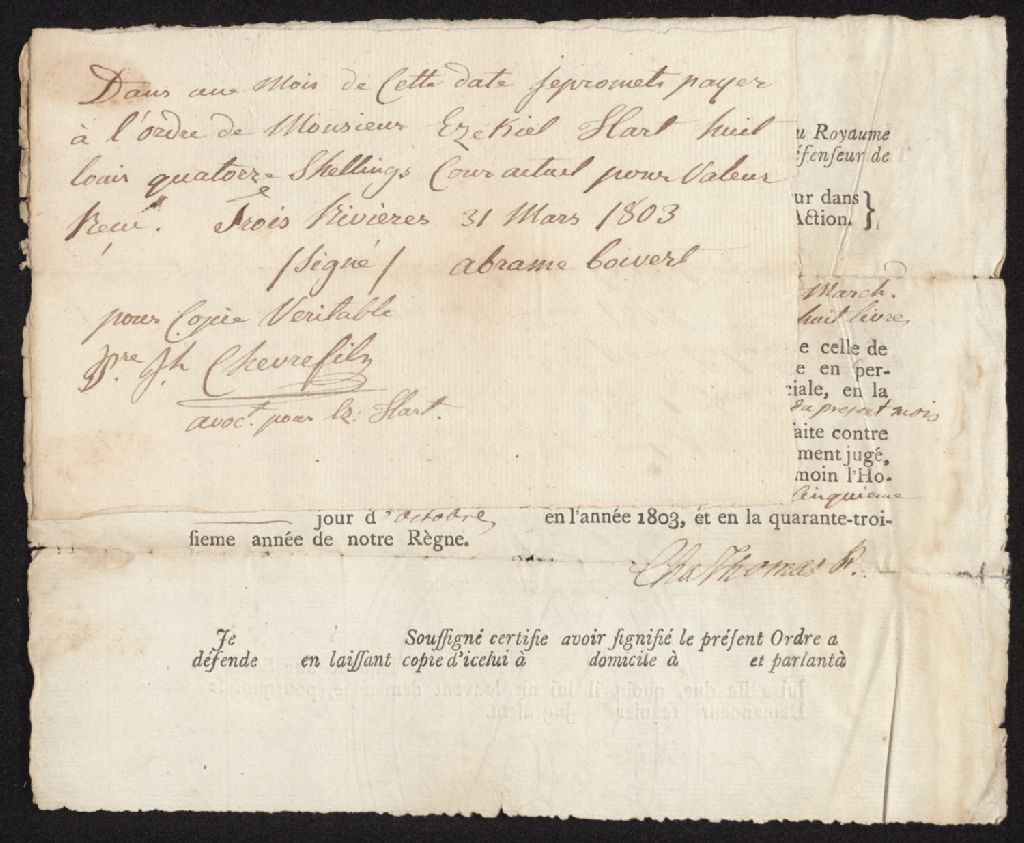 Dans une Mois de Cette date Jepromets payer
à l'ordre de Monsieur Ezekiel Hart huit
louis quatorze Shellings Cour actuel pour Valeur
Recue. Trois Rivières 31 Mars 1803
/Signé/ abrame boivert
pour Copie Veritable
Prre Jh Chevrefils
avoct. pour Ez: Hart.
u Royaume
éfenſeur de
ur dans
Action. }
March.
huit livres
e celle de
e en per-
ciale, en la
du present mois
faite contre
ment jugé,
moin l'Ho-
Cinquieme
jour d'octobre, en l'année 1803, et en la quarante-troi-
ſieme année de notre Règne.
Cha Thomas P.
Je Souſſigné certifie avoir ſignifié le préſent Ordre a
défende en laiſſant copie d'icelui à domicile à et parlantà